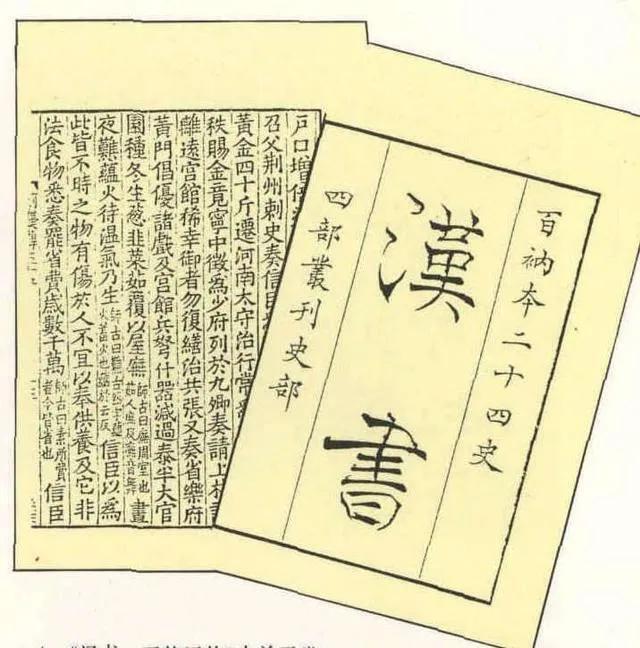 百衲本二十四史
漢書
四部叢刊史部
戶口增倍
召父荆州刺史奏信臣
黃金四十斤還河南太守治行常
秩賜金竟寧中徵爲少府列於九卿奏請上林
離遠宮館稀幸御者勿復繕治共張又奏省樂府
黃門倡優諸戲及宮館兵弩什器減過泰半大官
園種冬生葱韭菜茹覆以屋廡師古曰廡周室也茹人庶反廡音舞晝
夜難蘊火待溫氣乃生信臣以爲
此皆不時之物有傷於人不宜以奉供養及它非
法食物悉奏罷省費歲數千萬師古曰素所費者今皆省也信臣